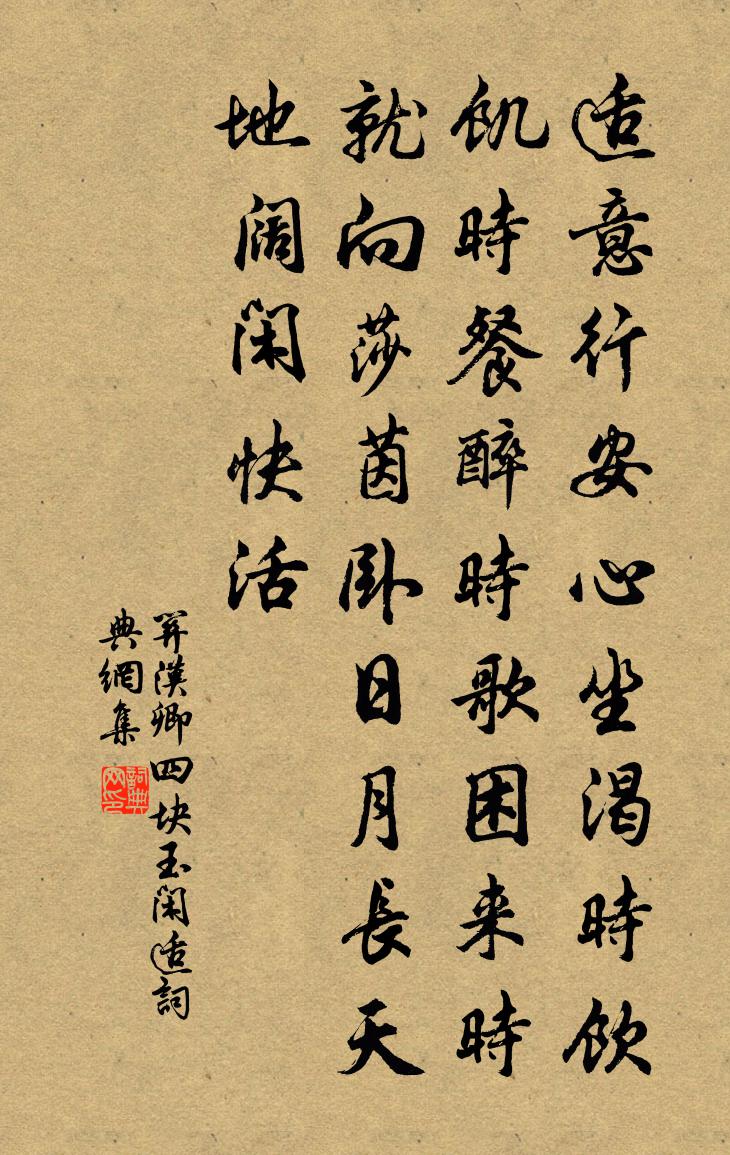 适意行安心坐渴時飲
飢時餐醉時歌困来時
就向莎茵卧日月長天
地阔闲快活
関漢卿四块玉闲适詞
典網集
詞典网印